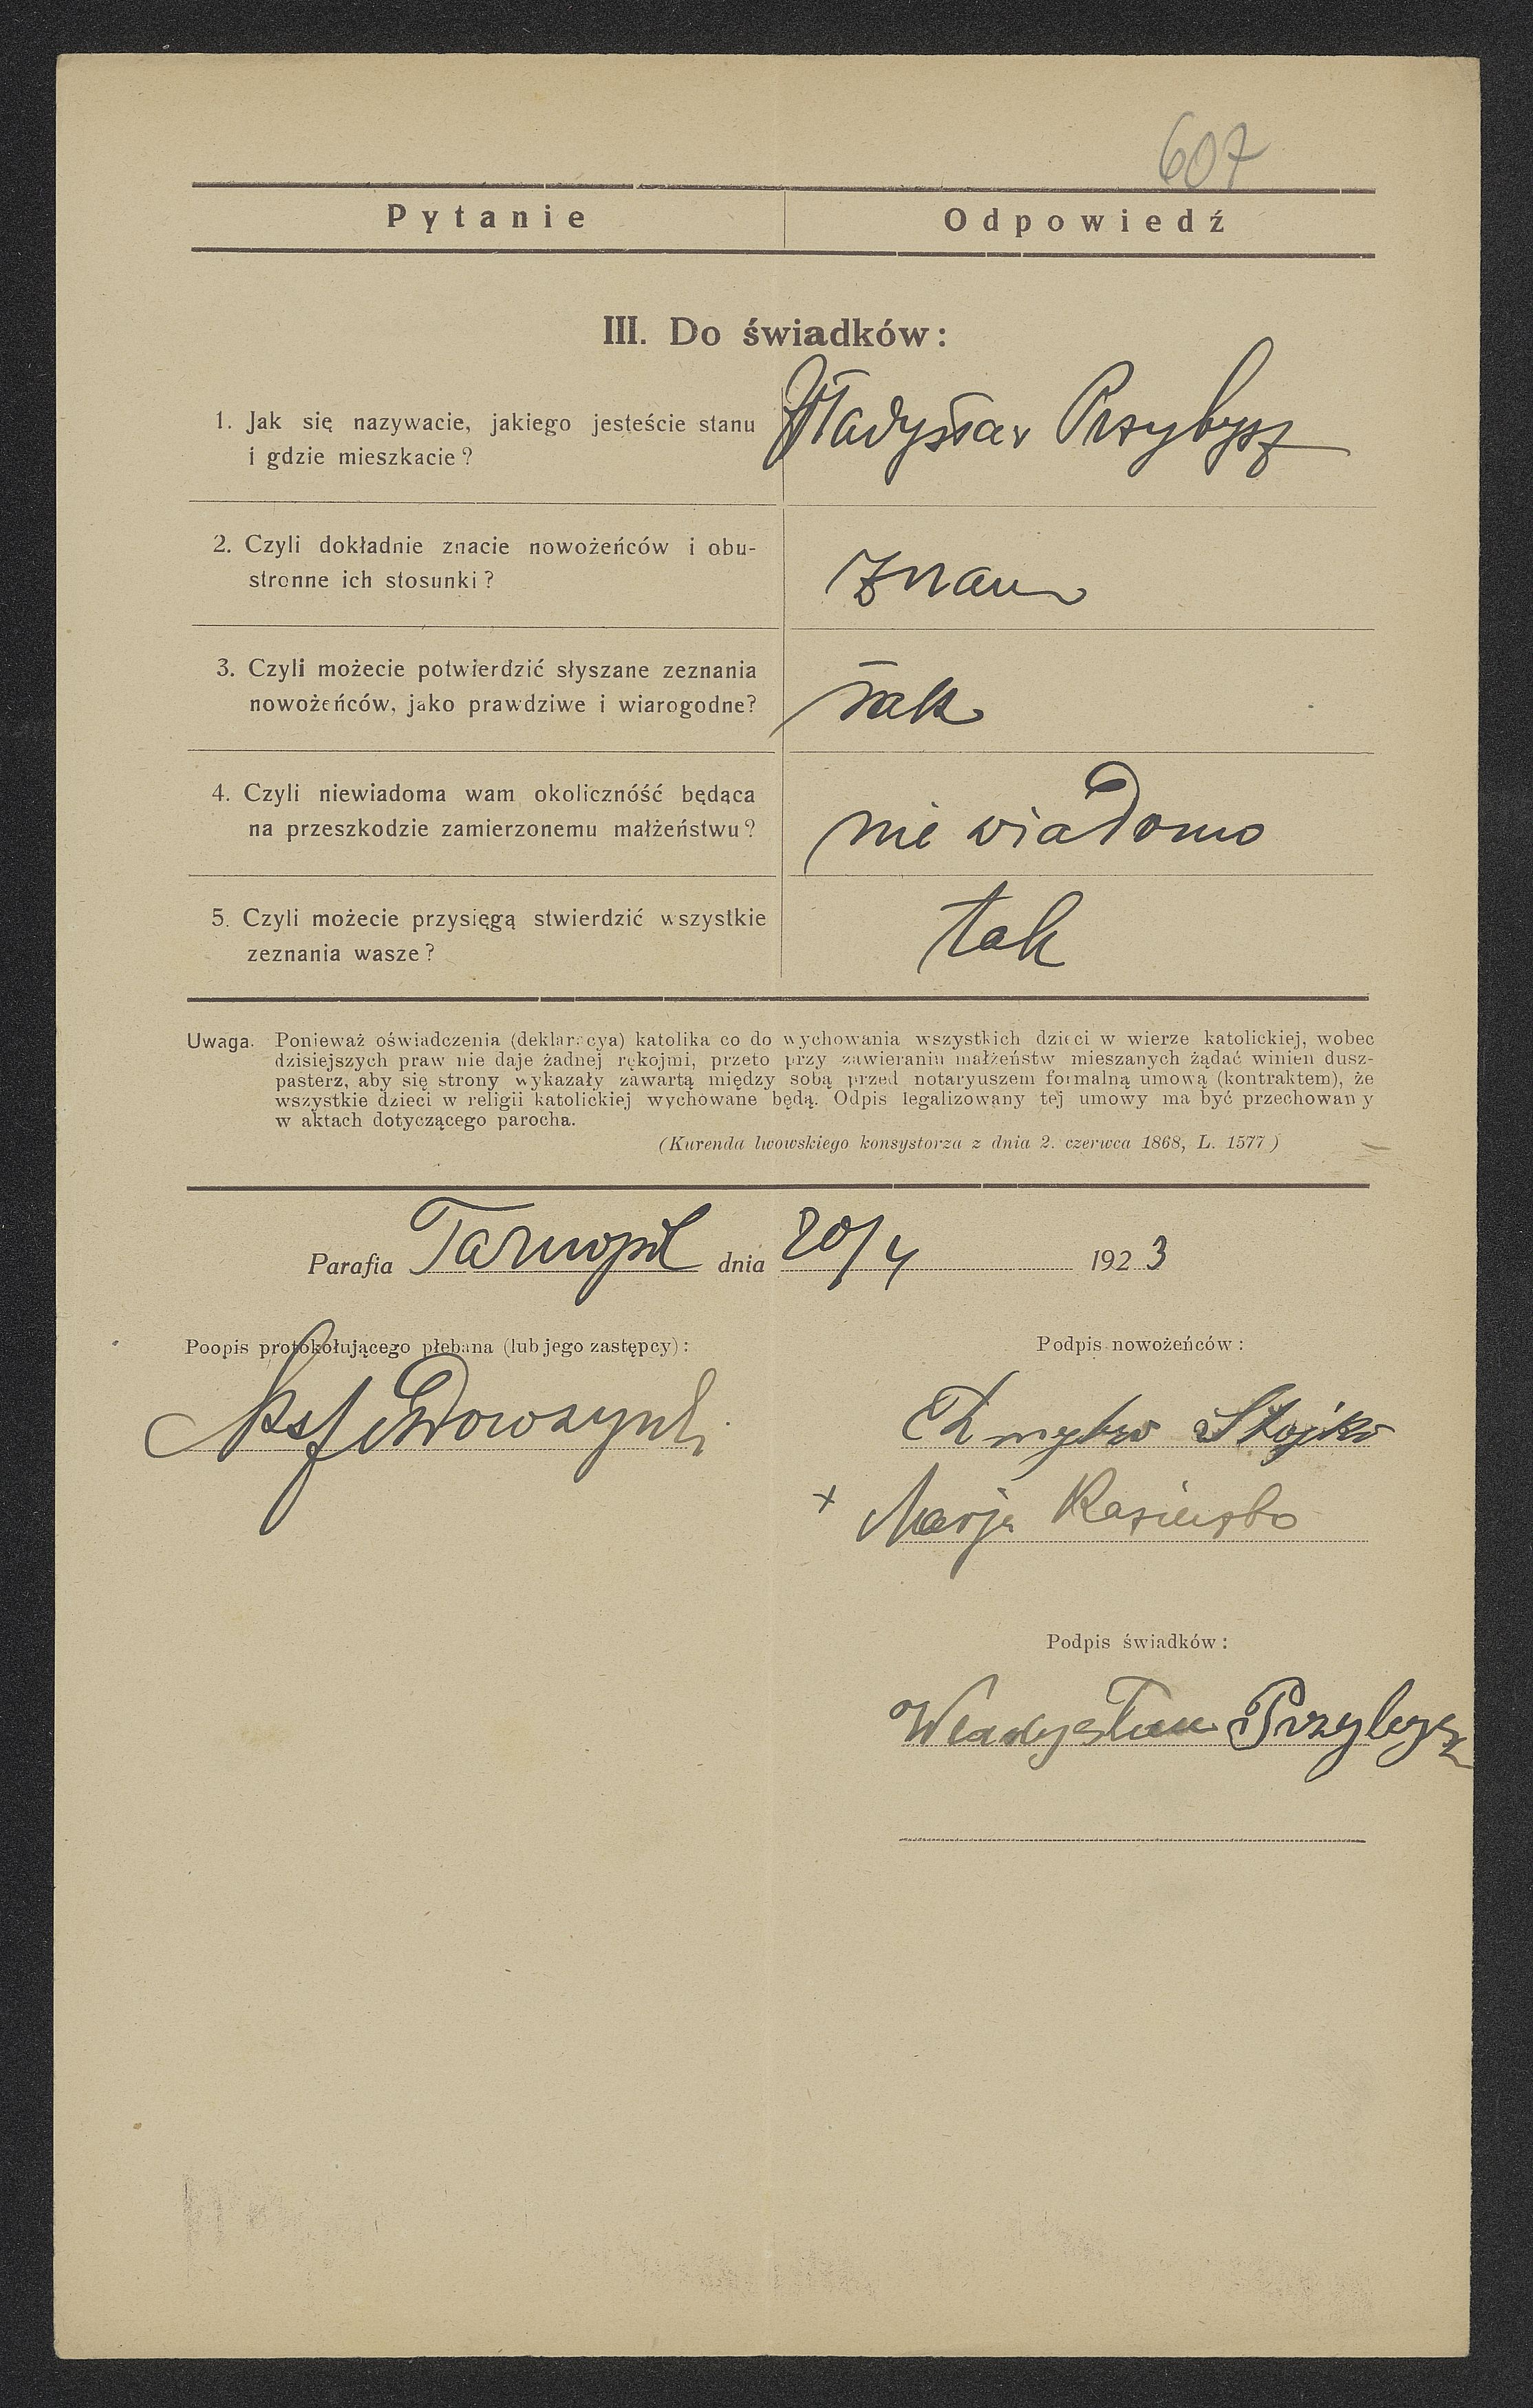 607
Pytanie Odpowiedź
III. Do świadków:
1. Jak się nazywacie, jakiego jesteście stanu
i gdzie mieszkacie?
Władysław Przybysz
2. Czyli dokładnie znacie nowożeńców i obu-
stronne ich stosunki?
znam
3. Czyli możecie potwierdzić słyszane zeznania
nowożeńców, jako prawdziwe i wiarogodne?
tak
4. Czyli niewiadoma wam okolicznóść będąca
na przeszkodzie zamierzonemu małżeństwu?
nie wiadomo
5. Czyli możecie przysięgą stwierdzić wszystkie
zeznania wasze?
tak
Uwaga. Ponieważ oświadczenia (deklaracya) katolika co do wychowania wszystkich dzieci w wierze katolickiej, wobec
dzisiejszych praw nie daje żadnej rękojmi, przeto przy zawieraniu małżeństw mieszanych żądać winien dusz-
pasterz, aby się strony wykazały zawartą między sobą przed notaryuszem formalną umową (kontraktem), że
wszystkie dzieci w religii katolickiej wychowane będą. Odpis legalizowany tej umowy ma być przechowany
w aktach dotyczącego parocha.
(Kurenda lwowskiego konsystorza z dnia 2. czerwca 1868, L. 1577)
Parafia Tarnopol dnia 20/4 1923
Poopis protokołującego plebana (lub jego zastępcy):
Podpis nowożeńców:
Stojko
+ Marja
Podpis świadków:
Władysław Przybysz